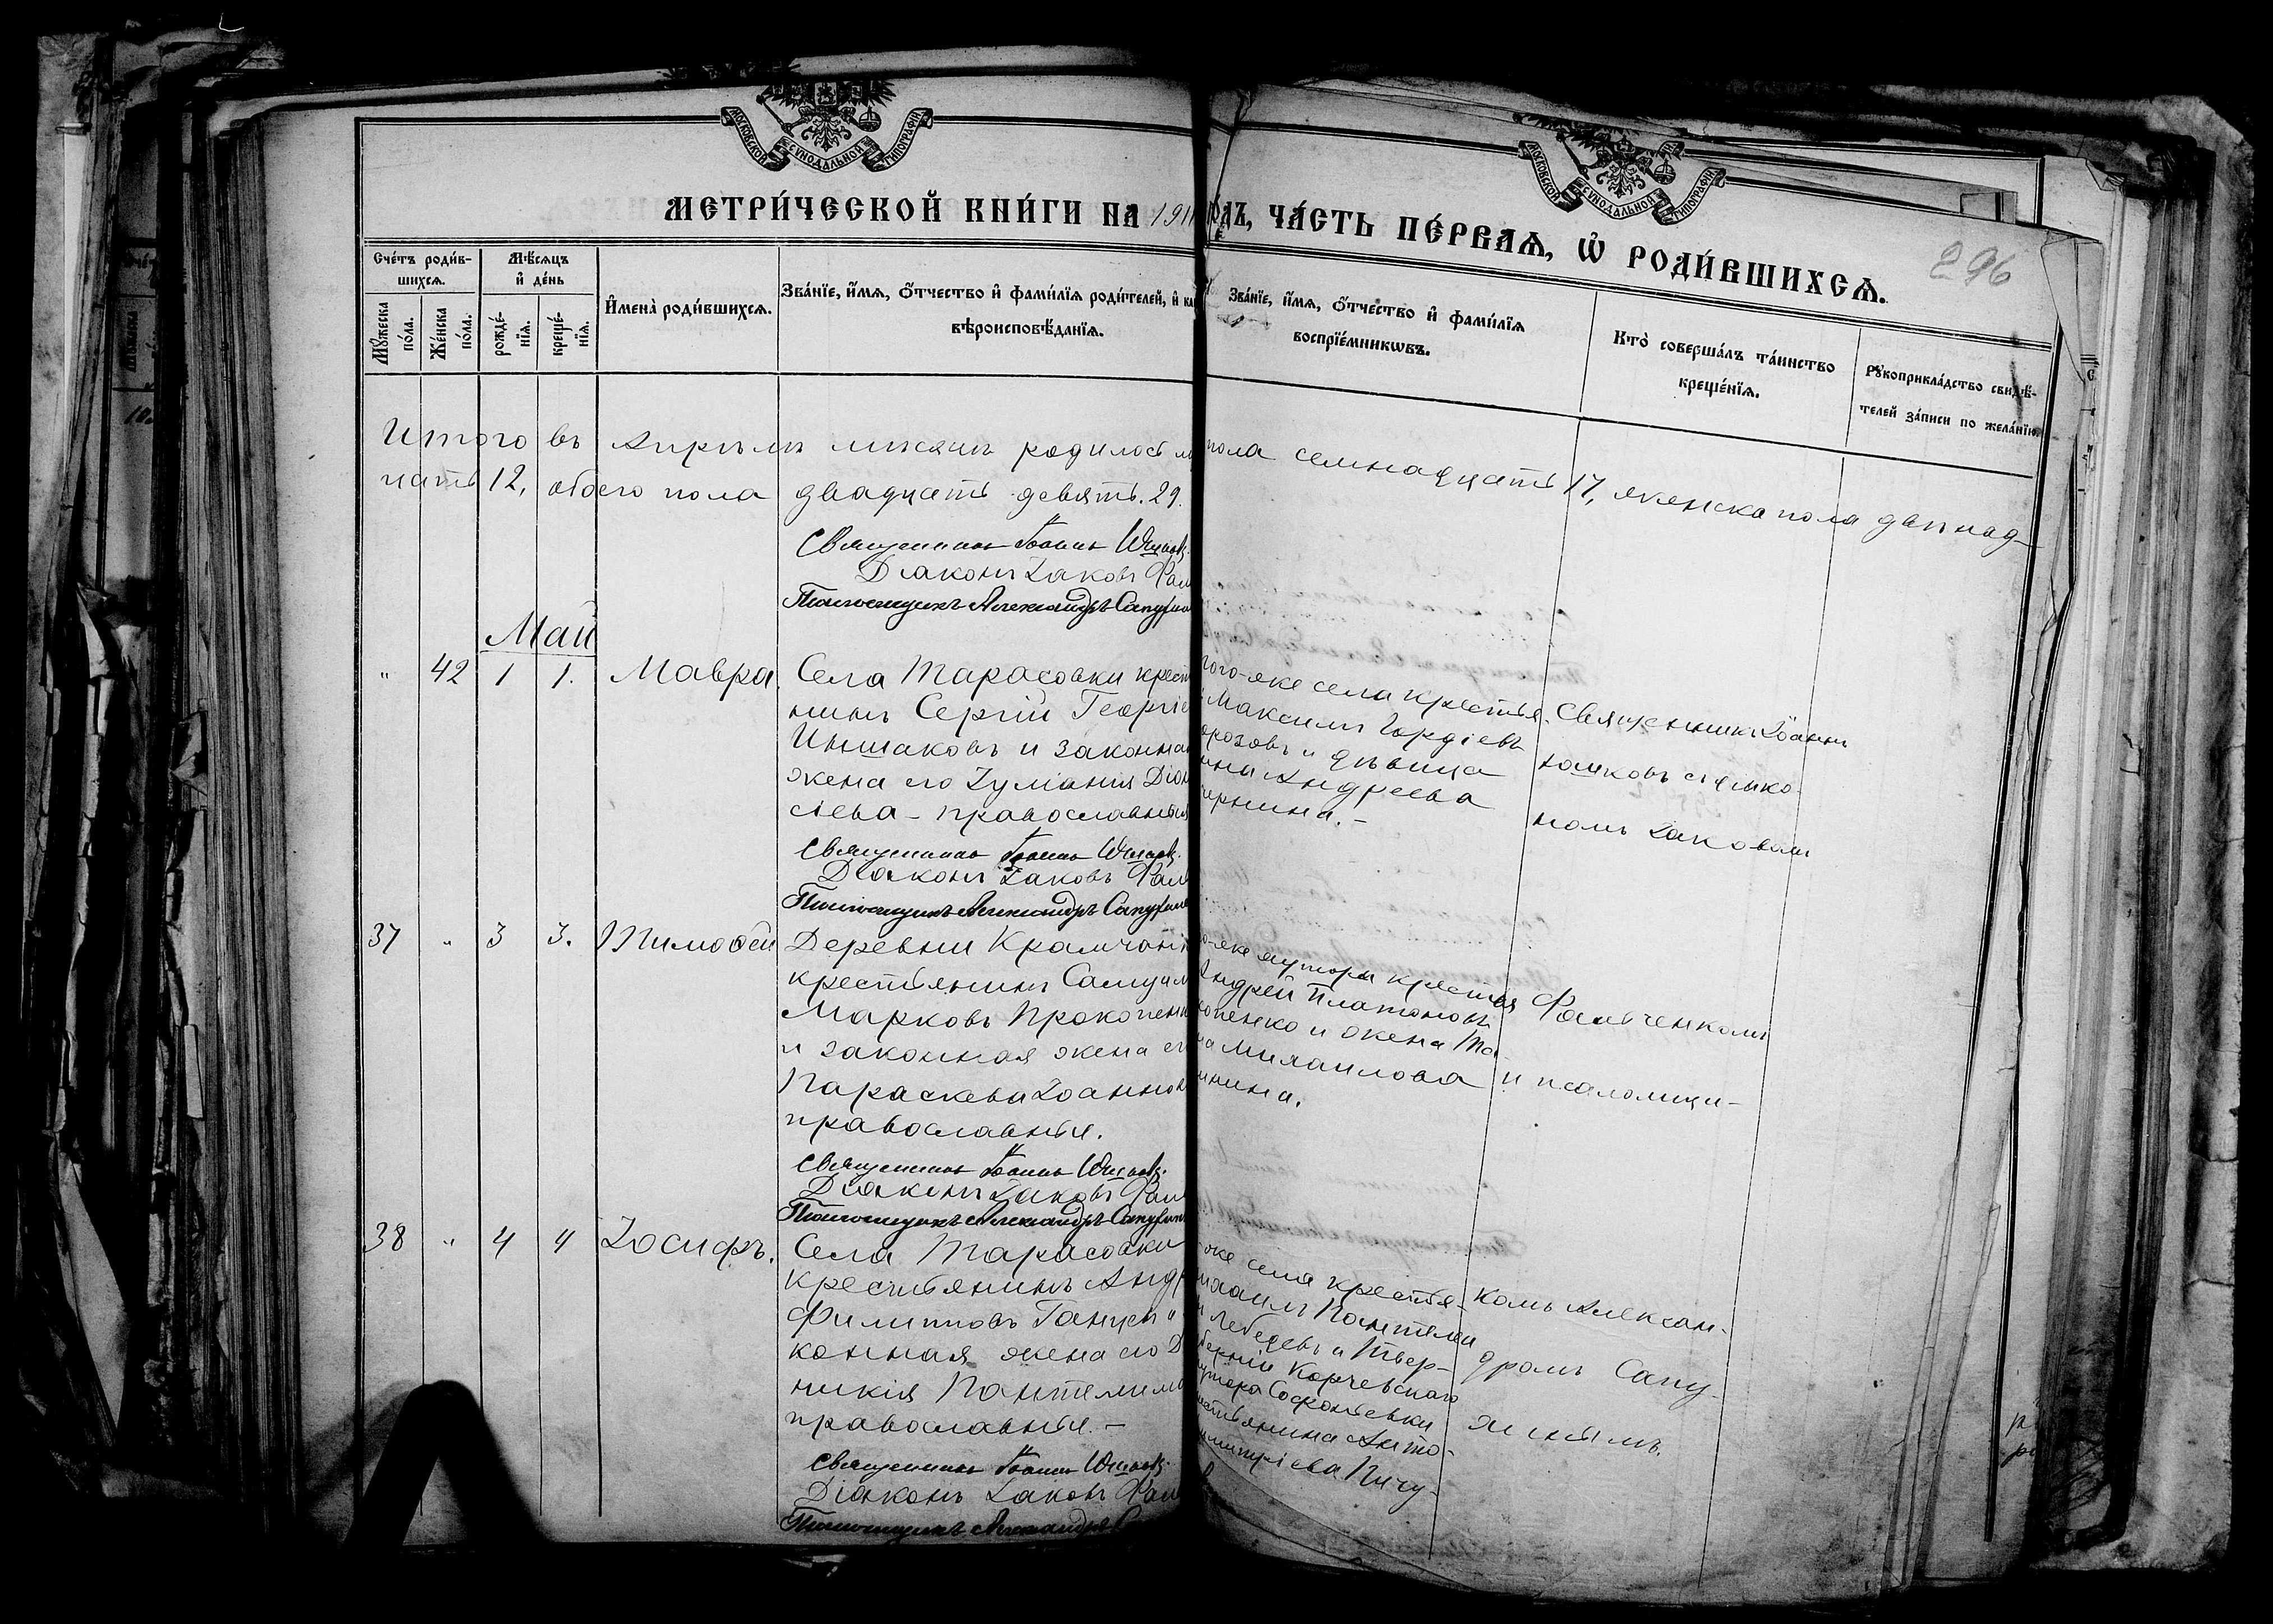 МОСКОВСКОЙ СѴНОДАЛЬНОЙ ТИПОГРАФІИ
МОСКОВСКОЙ СѴНОДАЛЬНОЙ ТИПОГРАФІИ
МЕТРИ́ЧЕСКОЙ КНИ́ГИ НА 191
ОДЪ, ЧА́СТЬ ПЕ́РВАѦ, Ѡ҆ РОДИ́ВШИХСѦ.
296
Сче́тъ роди́в-
шихсѧ.
Мꙋжеска по́ла.
Же́нска по́ла.
Мѣ́сѧцъ
и҆ де́нь
рожде́-
нїѧ.
креще́-
нїѧ.
И҆мена̀ роди́вшихсѧ.
Зва́нїе, и҆́мѧ, ѻ҆́тчество и҆ фами́лїѧ роди́телей, и҆ ка
вѣроисповѣ́данїѧ.
Зва́нїе, и҆́мѧ, ѻ҆́тчество и҆ фами́лїѧ
воспрїе́мникѡвъ.
Кто̀ соверша́лъ та́инство
креще́нїѧ.
Рꙋкоприкла́дство свидѣ́-
телей за́писи по жела́нїю
Итого въ Апрѣлѣ мѣсяцѣ родилось м
пола семнадцать 17, женска пола двѣнад-
цать 12, обоего пола двадцать девять. 29.
Священникъ Іоаннъ
Діаконъ Іаковъ Фал
Псаломщикъ Александръ Сапу
Май
" 42 1 1. Мавра.
Села Тарасовки крест
нинъ Сергій Георгіе
Иншаковъ и законна
жена его Іуліанія Діон
сіева - православныя
Священникъ Іоаннъ
Діаконъ Іаковъ Фал
Псаломщикъ Александръ Сапу
того-же села крестья-
Максимъ Гордіевъ
орозовъ и дѣвица
Андреева
Священникъ Іоаннъ
съ діако-
номъ Іаковомъ
37 " 3 3. Тимоѳей
Деревни Крамчан
крестьянинъ Самуил
Марковъ Прокопенк
и законная жена ег
Параскева Іоаннов
православныя.
Священникъ Іоаннъ
Діаконъ Іаковъ Фал
Псаломщикъ Александръ Сапу
о-же хутора крестья
Андрей Платоновъ
опенко и жена
на Михаилова
Фальченкомъ
и псаломщи-
38 " 4 4 Іосифъ.
Села Тарасовки
крестьянинъ Анд
Филипповъ Ганцев и
конная жена его Д
никія Пантелеимо
православныя. -
Священникъ Іоаннъ
Діаконъ Іаковъ Фал
Псаломщикъ Александръ
же села крестья-
ихаилъ Пантелеи
Лебедевъ и Твер-
берніи Корчевскаго
утора Софоньевки
естьянина Анто-
имитріева Пичу-
комъ Алексан-
дромъ Сапу-